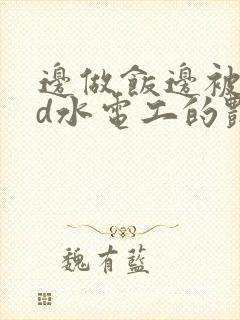 邊做飯邊被
d水電工的
魏有藍